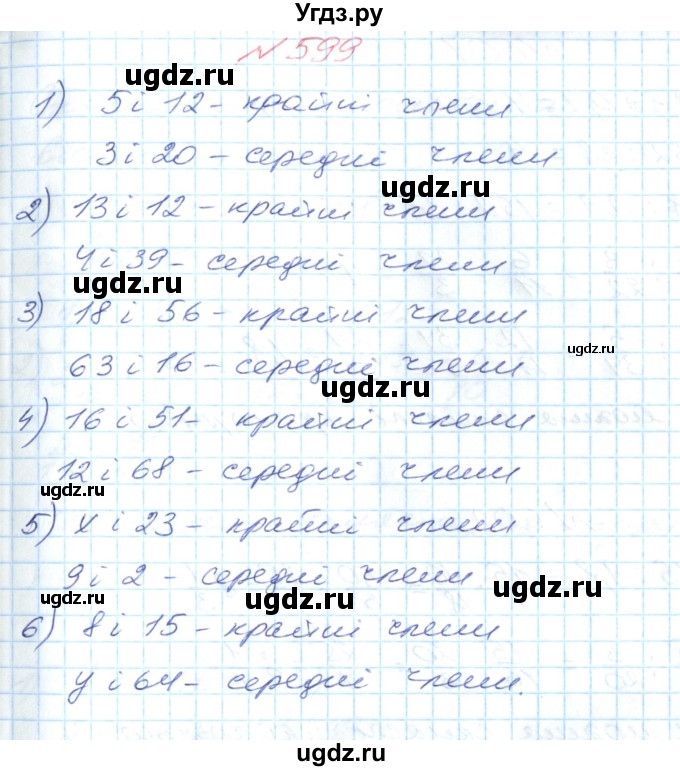 Угдз.ру
№ 599
ugdz.ru
1) 5 і 12 - крайні члени
3 і 20 - середні члени
ugdz.ru
2) 13 і 12 - крайні члени
4 і 39 - середні члени
ugdz.ru
3) 18 і 56 - крайні члени
ugdz.ru
63 і 16 - середні члени
ugdz.ru
4) 16 і 51 - крайні члени
12 і 68 - середні члени
ugdz.ru
5) х і 23 - крайні члени
9 і 2 - середні члени
ugdz.ru ugdz.ru ugdz.ru
6) 8 і 15 - крайні члени
у і 64 - середні члени.
ugdz.ru